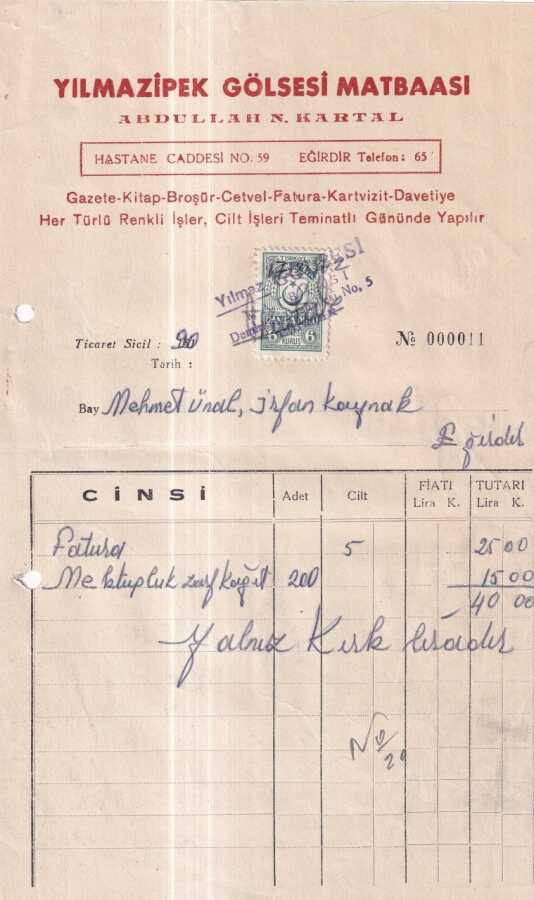 YILMAZİPEK GÖLSESİ MATBAASI
ABDULLAH N. KARTAL
HASTANE CADDESİ NO. 59 EĞİRDİR Telefon: 65
Gazete-Kitap-Broşür-Cetvel-Fatura-Kartvizit-Davetiye
Her Türlü Renkli İşler, Cilt İşleri Teminatlı Gününde Yapılır
Yılmaz
No. 5
5 KURUŞ 5
Ticaret Sicil : 90 № 000011
Tarih :
Bay Mehmet Ünal, İrfan Kaynak
Eğirdir
CİNSİ Adet Cilt FİATI TUTARI
Lira K. Lira K.
Fatura 5 25 00
Mektupluk zarf kağıt 200 15 00
40 00
Yalnız Kırk liradır
No/29